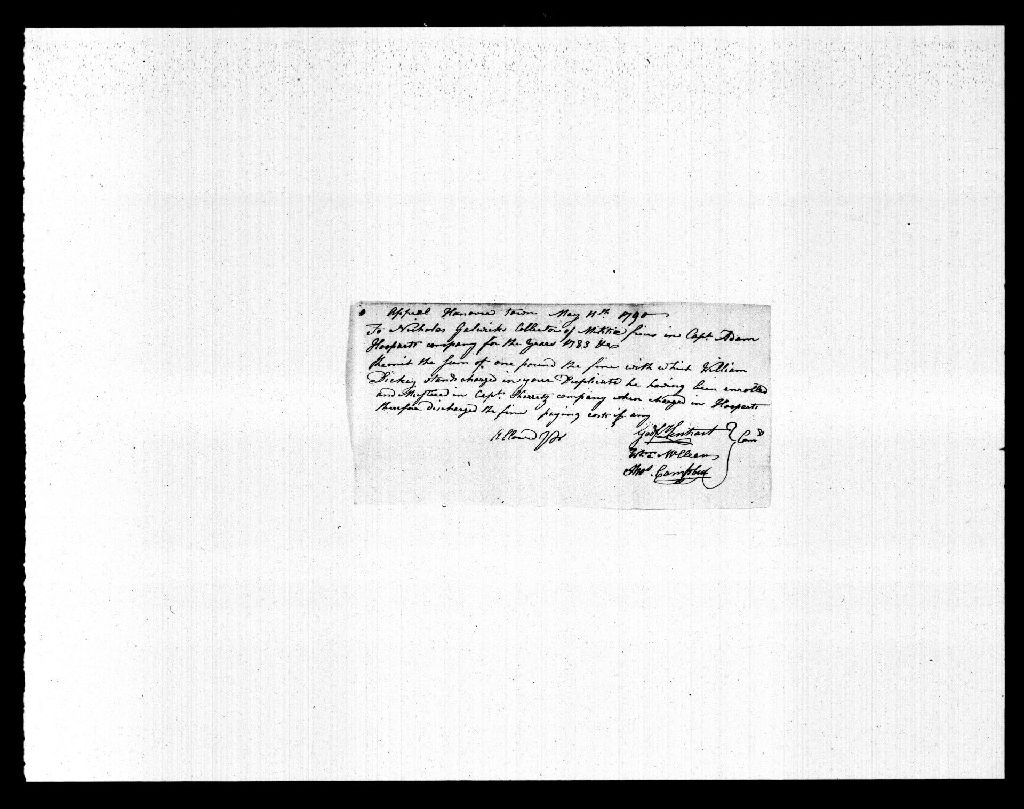 Appeal Hanover town May 11th 1790
To Nicholas Gelwicks Collector of Militia fines in Capt. Adam
Hooparts company for the years 1783 &c
Remit the sum of one pound the fine with which William
Dickey stands charged in your Duplicate he having been enrolled
and Mustered in Capt. company when charged in Hooparts
therefore discharged the fine paying costs if any
Allowd
Godf. Lenhart
Wm McClean Com.
Thos. Campbell